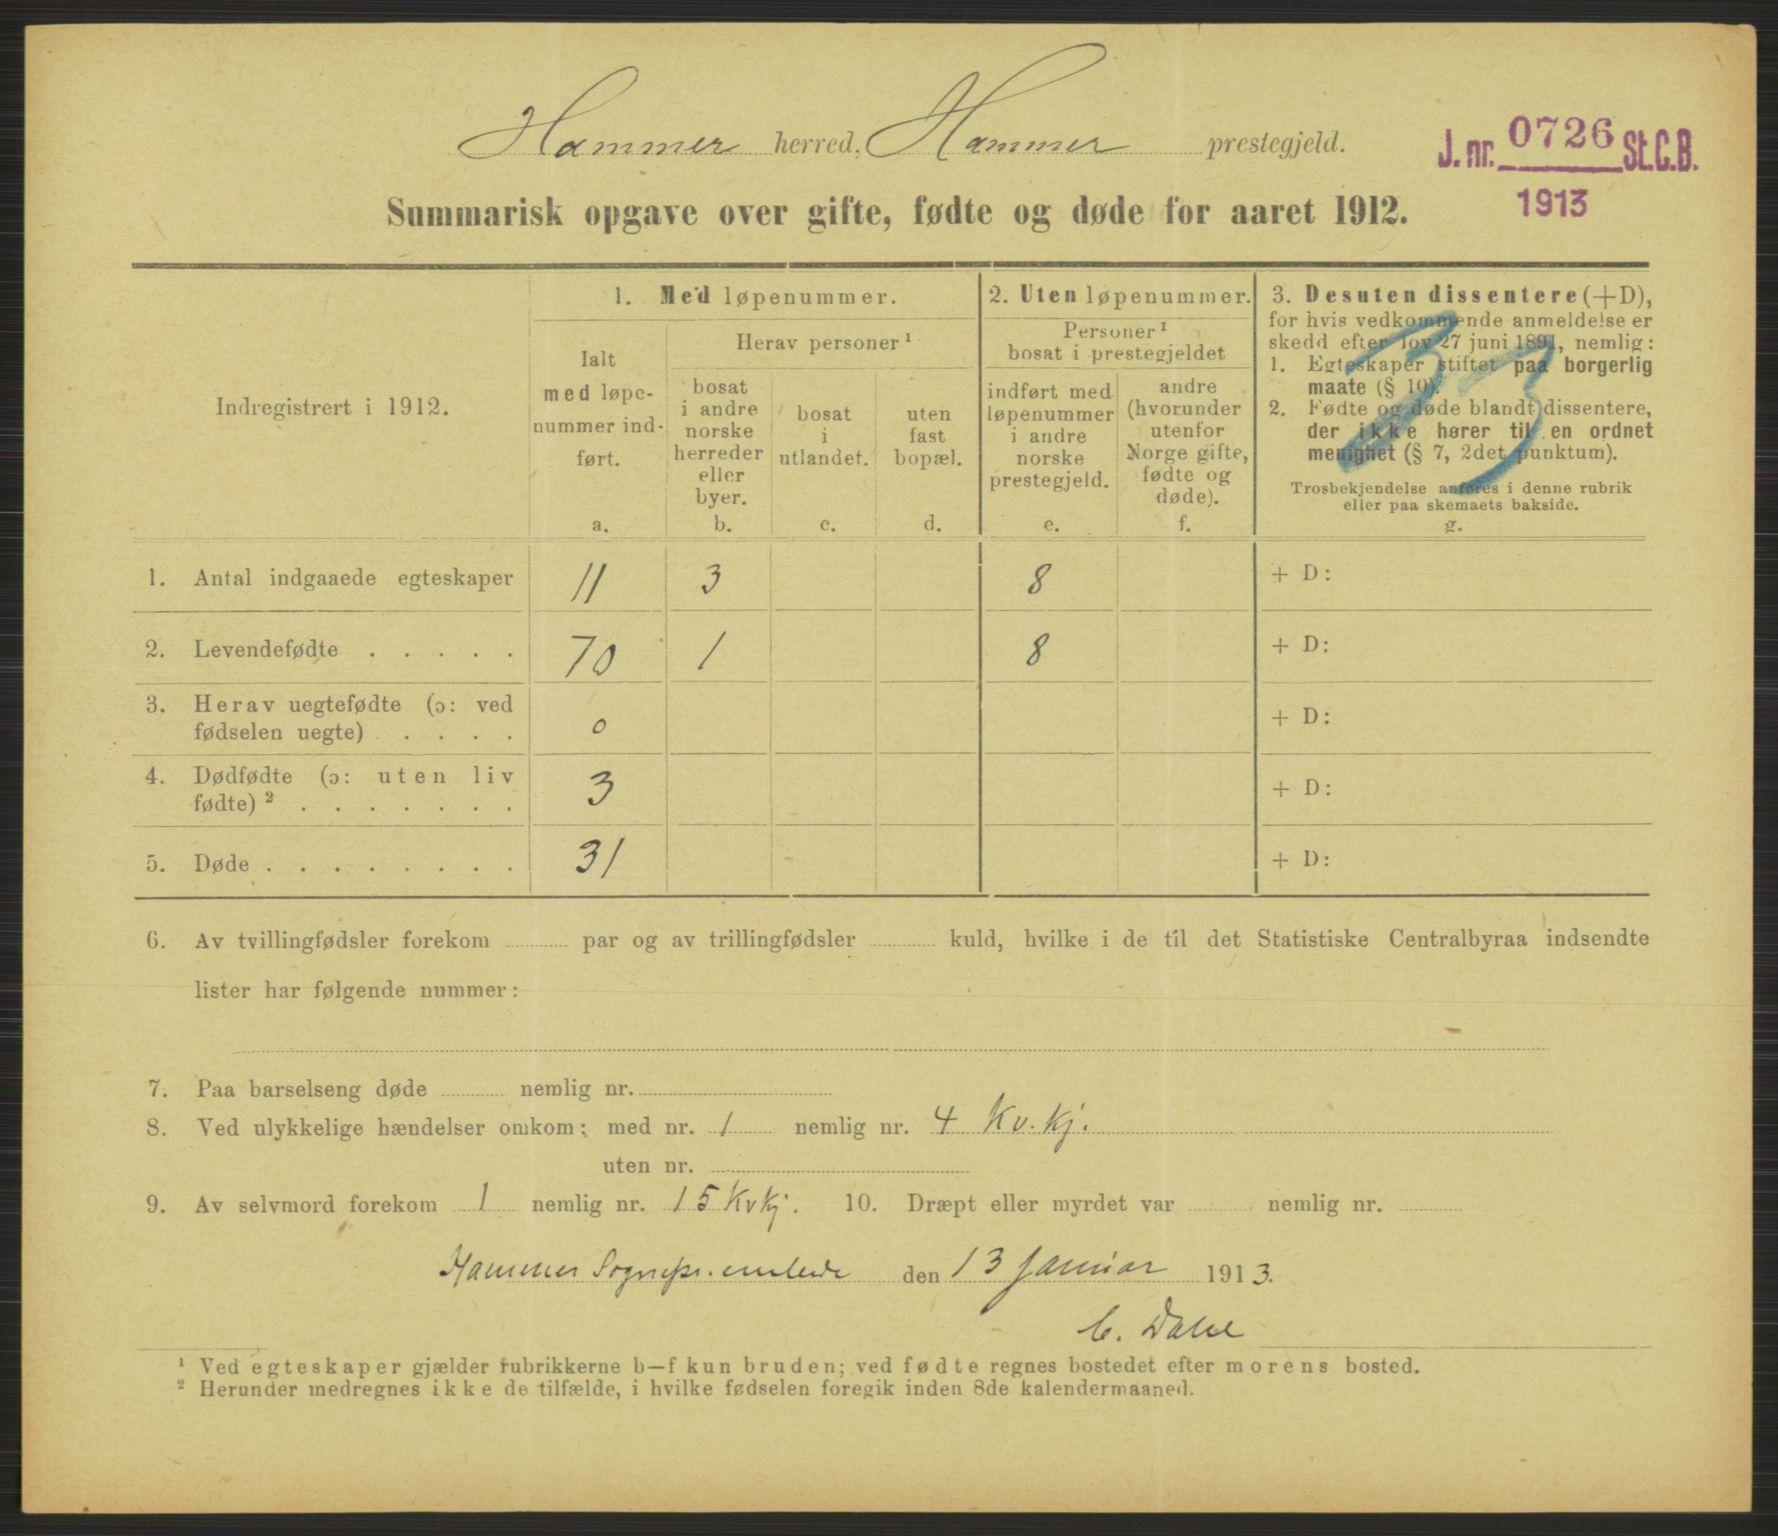 Hammer herred, Hammer prestegjeld.
J. nr. 0726 St.C.B.
1913
Summarisk opgave over gifte, fødte og døde for aaret 1912.
Indregistrert i 1912.
1. Med løpenummer.
Ialt
med løpe-
nummer ind-
ført.
a.
Herav personer ¹
bosat
i andre
norske
herreder
eller
byer.
b.
bosat
i
utlandet.
c.
uten
fast
bopæl.
d.
2. Uten løpenummer.
Personer ¹
bosat i prestegjeldet
indført med
løpenummer
i andre
norske
prestegjeld.
e.
andre
(hvorunder
utenfor
Norge gifte,
fødte og
døde).
f.
3. Desuten dissentere (+D),
for hvis vedkommende anmeldelse er
skedd efter lov 27 juni 1891, nemlig:
1. Egteskaper stiftet paa borgerlig
maate (§ 10).
2. Fødte og døde blandt dissentere,
der ikke hører til en ordnet
menighet (§ 7, 2det punktum).
Trosbekjendelse anføres i denne rubrik
eller paa skemaets bakside.
g.
33
1. Antal indgaaede egteskaper 11 3 8 + D:
2. Levendefødte . . . . . 70 1 8 + D:
3. Herav uegtefødte (ɔ: ved
fødselen uegte) . . . . 0 + D:
4. Dødfødte (ɔ: uten liv
fødte) ² . . . . . . . 3 + D:
5. Døde . . . . . . . . 31 + D:
6. Av tvillingfødsler forekom par og av trillingfødsler kuld, hvilke i de til det Statistiske Centralbyraa indsendte
lister har følgende nummer:
7. Paa barselseng døde nemlig nr.
8. Ved ulykkelige hændelser omkom: med nr. 1 nemlig nr. 4 Kv. kj.
uten nr.
9. Av selvmord forekom 1 nemlig nr. 15 Kvkj. 10. Dræpt eller myrdet var nemlig nr.
Hammer Sognepr.embede den 13 januar 1913.
C. Dahl
¹ Ved egteskaper gjælder rubrikkerne b—f kun bruden; ved fødte regnes bostedet efter morens bosted.
² Herunder medregnes ikke de tilfælde, i hvilke fødselen foregik inden 8de kalendermaaned.